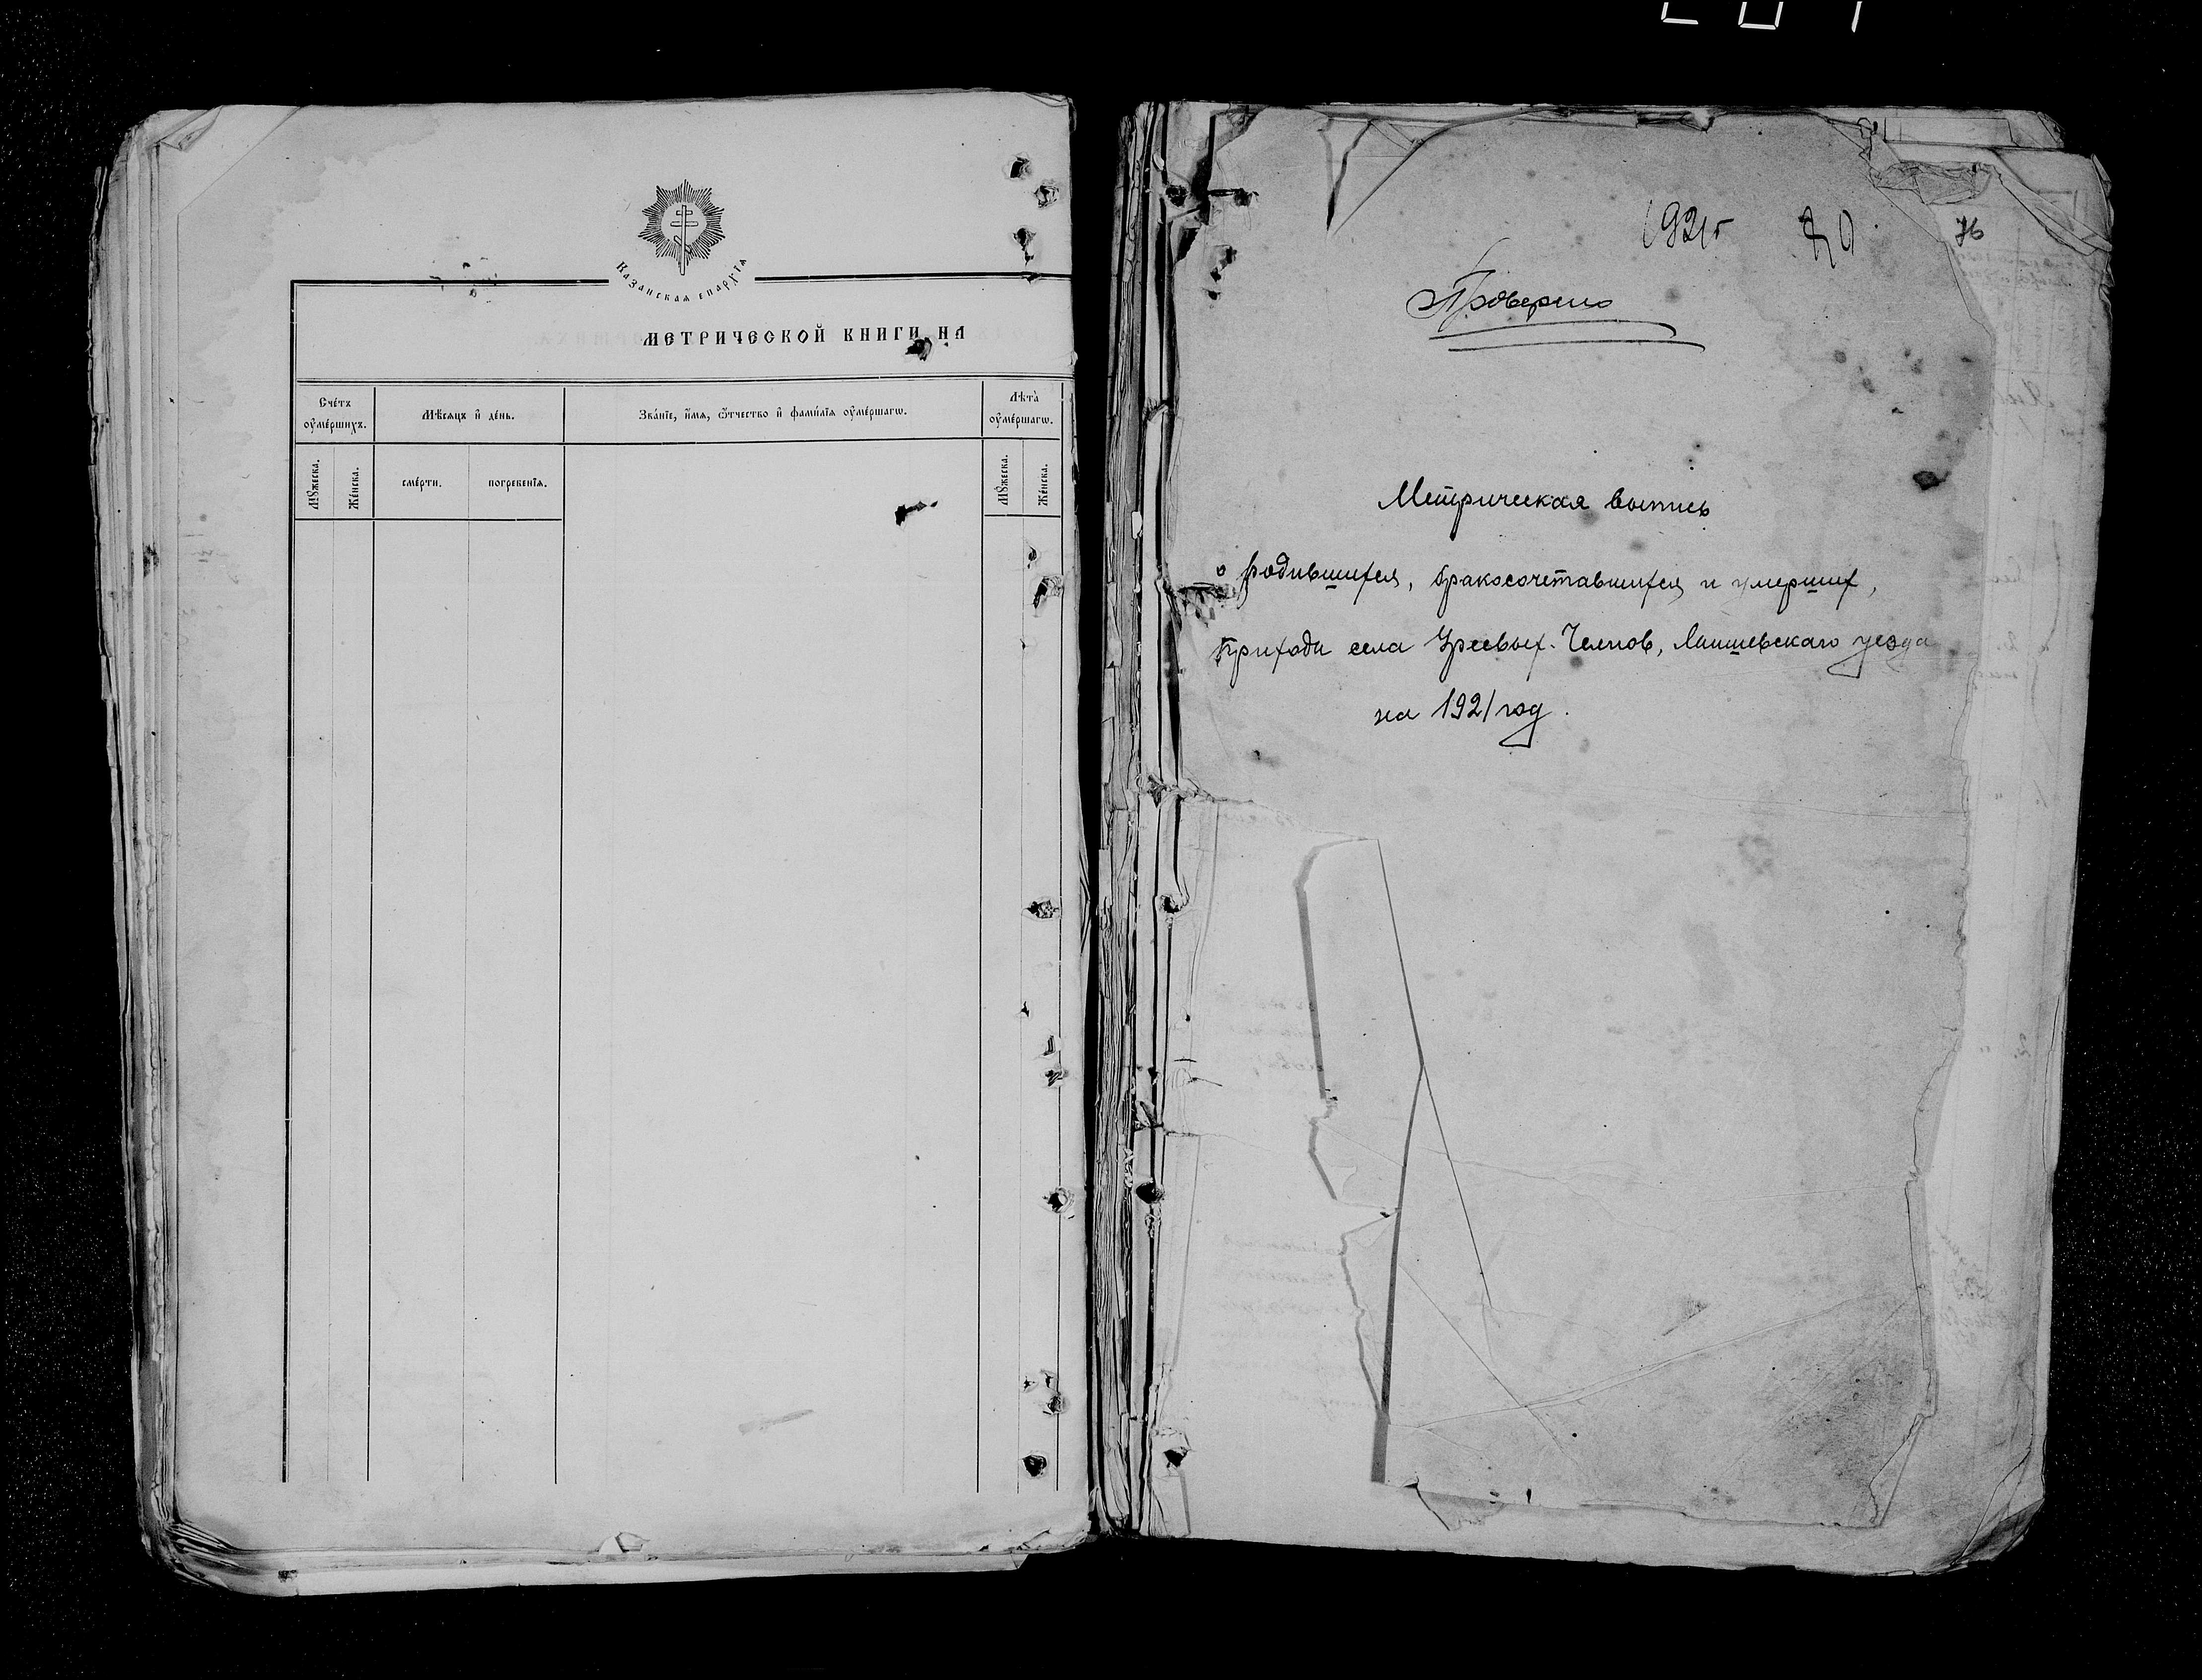 Казанская епархїѧ
МЕТРИЧЕСКОЙ КНИГИ НА
Сче́тъ оу҆ме́ршихъ.
Мѣ́сѧцъ и҆ де́нь.
Зва́нїе, и҆́мѧ, ѻ҆́тчество и҆ фами́лїѧ оу҆ме́ршагѡ.
Лѣта̀ оу҆ме́ршагѡ.
Мꙋ́жеска.
Же́нска.
сме́рти.
погребе́нїѧ.
Мꙋ́жеска.
Же́нска.
1921г
76
Проверено
Метрическая выпись
о родившихся, бракосочетавшихся и умерших,
прихода села Уреевых-Челнов, Лаишевскаго уезда
на 1921 год.